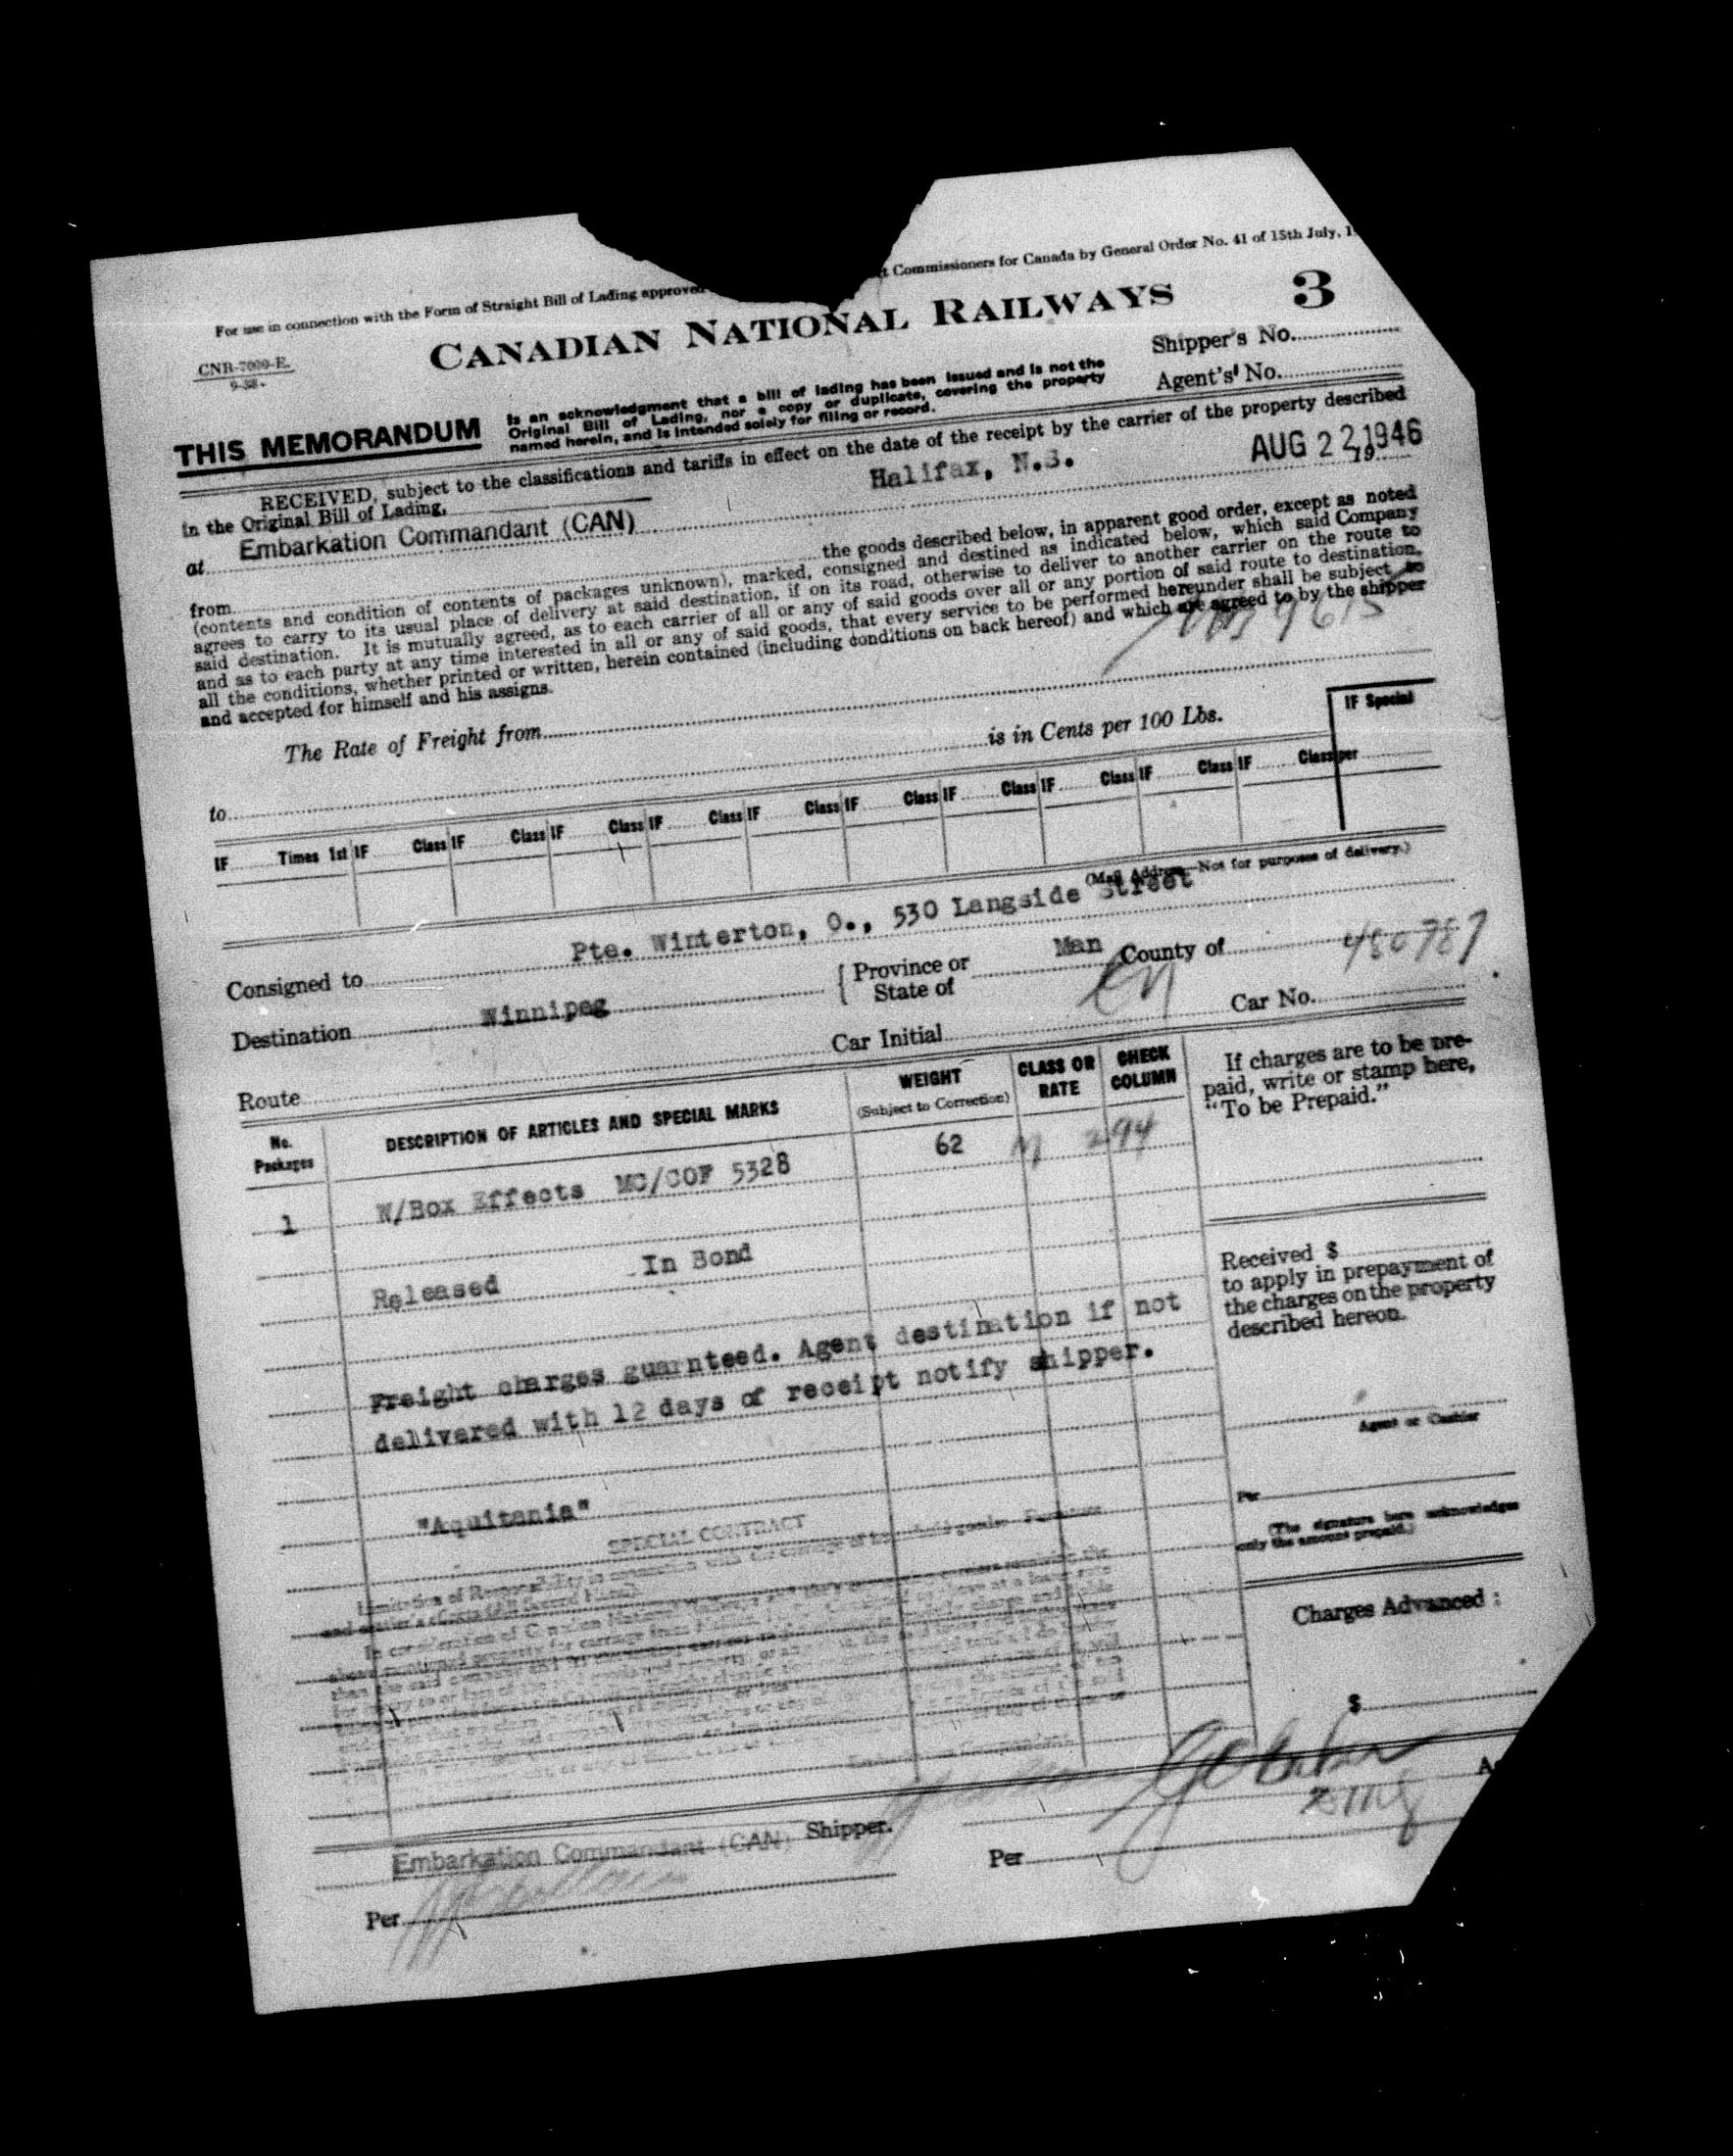 For use in connection with the Form of Straight Bill of Lading approved Commissioners for Canada by General Order No. 41 of 15th July,
CANADIAN NATIONAL RAILWAYS 3
CNR-7000-E.
9-38.
Shipper's No.
Agent's No.
THIS MEMORANDUM
Is an acknowledgment that a bill of lading has been issued and is not the
Original Bill of Lading, nor a copy or duplicate, covering the property
named herein, and is intended solely for filing or record.
RECEIVED, subject to the classifications and tariffs in effect on the date of the receipt by the carrier of the property described
in the Original Bill of Lading,
Halifax, N.S. AUG 22 1946
19
at Embarkation Commandant (CAN)
from the goods described below, in apparent good order, except as noted
(contents and condition of contents of packages unknown), marked, consigned and destined as indicated below, which said Company
agrees to carry to its usual place of delivery at said destination, if on its road, otherwise to deliver to another carrier on the route to
said destination. It is mutually agreed, as to each carrier of all or any of said goods over all or any portion of said route to destination,
and as to each party at any time interested in all or any of said goods, that every service to be performed hereunder shall be subject to
all the conditions, whether printed or written, herein contained (including conditions on back hereof) and which are agreed to by the shipper
and accepted for himself and his assigns.
The Rate of Freight from
to is in Cents per 100 Lbs.
IF Special
IF Times 1st IF Class IF Class IF Class IF Class IF Class IF Class IF Class IF Class IF Class IF Class per
(Mail Address—Not for purposes of delivery.)
Consigned to Pte. Winterton, O., 530 Langside Street
Destination Winnipeg Province or State of Man County of
Route Car Initial CN Car No. 480787
No. Packages DESCRIPTION OF ARTICLES AND SPECIAL MARKS WEIGHT (Subject to Correction) CLASS OR RATE CHECK COLUMN
If charges are to be pre-
paid, write or stamp here,
"To be Prepaid."
1 W/Box Effects MC/COF 5328 62 294
Released In Bond
Received $
to apply in prepayment of
the charges on the property
described hereon.
Freight charges guarnteed. Agent destination if not
delivered with 12 days of receipt notify shipper.
Agent or Cashier
"Aquitania"
Per
(The signature here acknowledges
only the amount prepaid.)
SPECIAL CONTRACT
Limitation of Responsibility in connection with the carriage of
Charges Advanced:
$
Embarkation Commandant (CAN) Shipper.
Per
Per